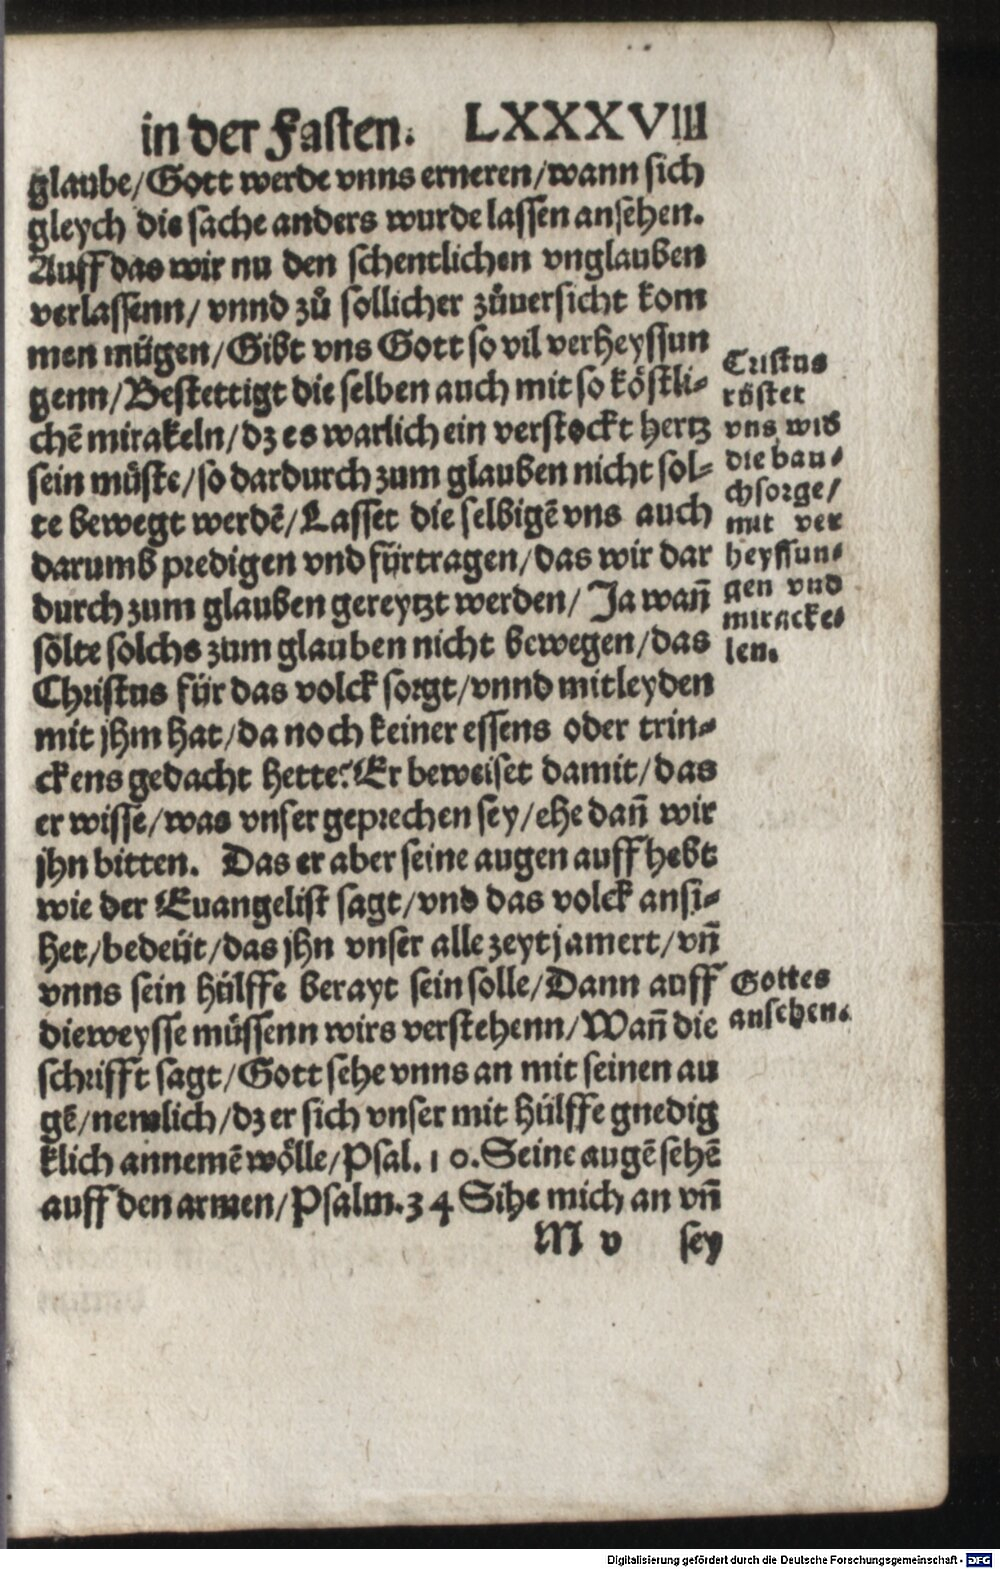 in der Fasten. LXXXVIII
glaube/Gott werde vnns erneren/wann sich
gleych die sache anders wurde lassen ansehen.
Auff das wir nu den schentlichen vnglauben
verlassenn/ vnnd zů sollicher zůuersicht kom
men mügen/Gibt vns Gott so vil verheyssun
genn/Bestettigt die selben auch mit so köstli-
chē mirakeln/dz es warlich ein verstockt hertz
sein müste/so dardurch zum glauben nicht sol-
te bewegt werdē/Lasset die selbigē vns auch
darumb predigen vnd fürtragen/das wir dar
durch zum glauben gereytzt werden/ Ja wañ
sölte solchs zum glauben nicht bewegen/das
Christus für das volck sorgt/vnnd mitleyden
mit jhm hat/da noch keiner essens oder trin-
ckens gedacht hette? Er beweiset damit/das
er wisse/was vnser geprechen sey/ehe dañ wir
jhn bitten. Das er aber seine augen auff hebt
wie der Euangelist sagt/vnd das volck ansi-
het/bedeüt/das jhn vnser alle zeyt jamert/vñ
vnns sein hülffe berayt sein solle/Dann auff
die weysse müssenn wirs verstehenn/Wañ die
schrifft sagt/Gott sehe vnns an mit seinen au
gē/nemlich/dz er sich vnser mit hülffe gnedig
klich annemē wölle/Psal. 10. Seine augē sehē
auff den armen/Psalm. 34 Sihe mich an vñ
M v sey
Cristus
röstet
vns wid
die bau-
chsorge/
mit ver
heyssun-
gen vnd
miracke-
len.
Gottes
ansehen.
Digitalisierung gefördert durch die Deutsche Forschungsgemeinschaft - DFG